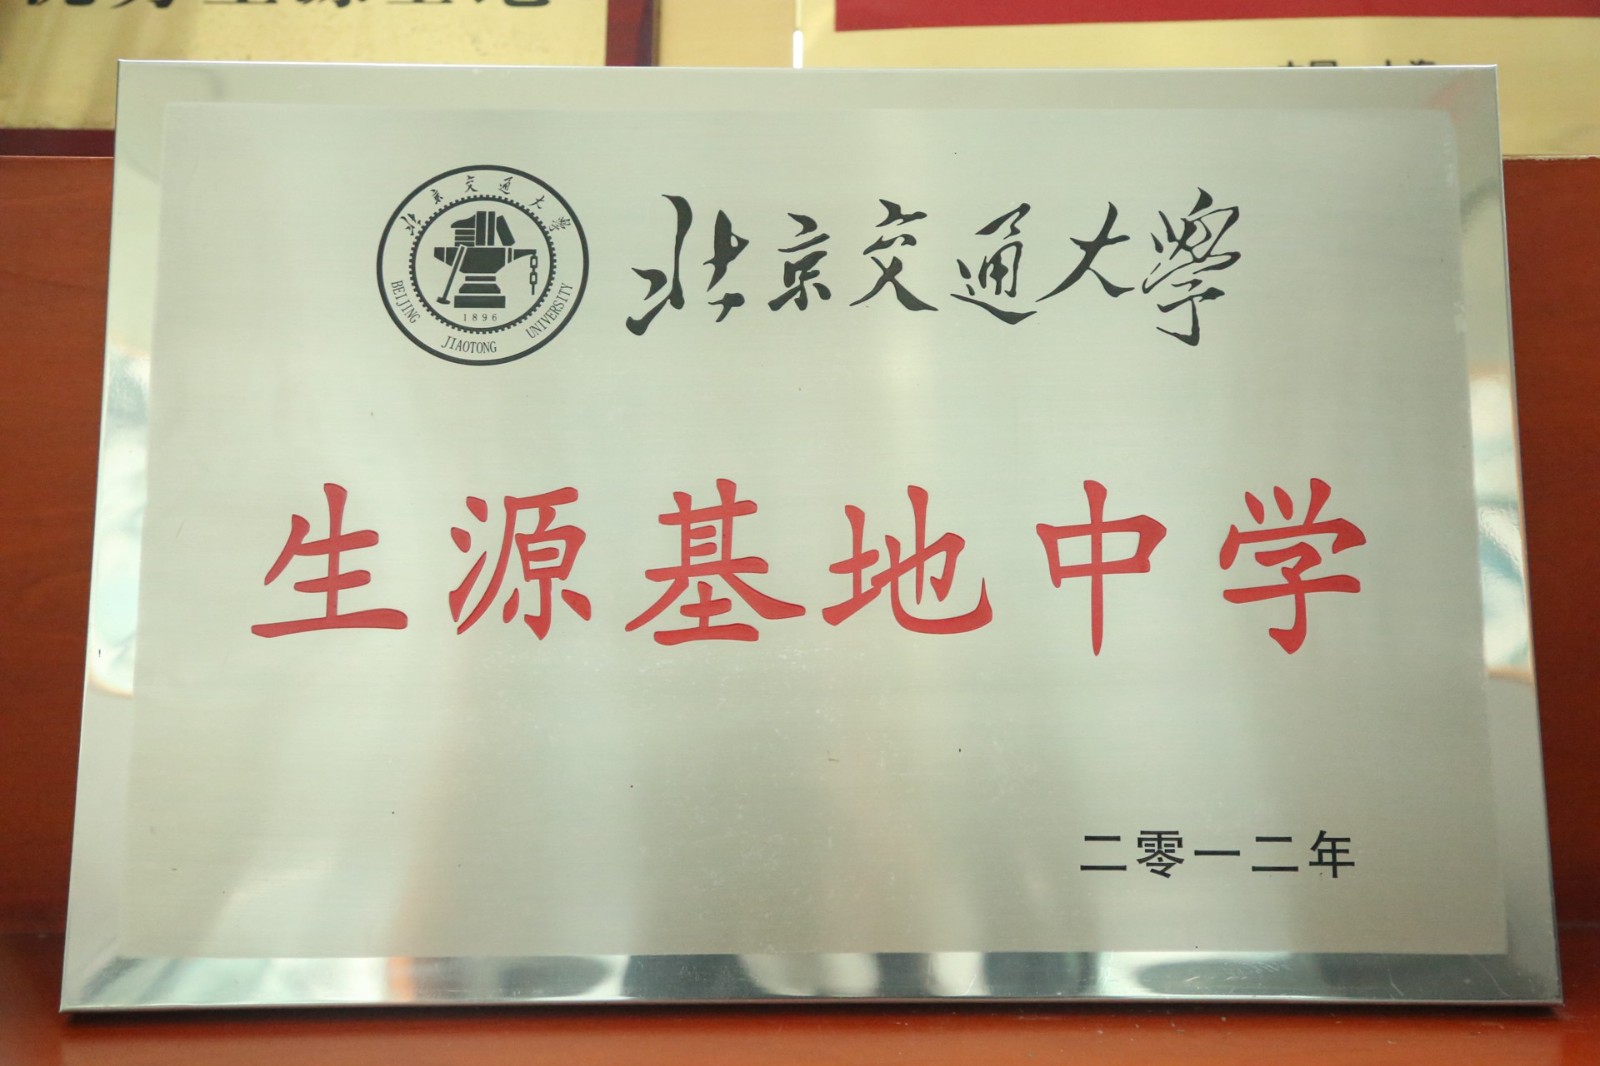 优秀生源基地
北京交通大學
北京交通大學
1896
BEIJING JIAOTONG UNIVERSITY
生源基地中学
二零一二年